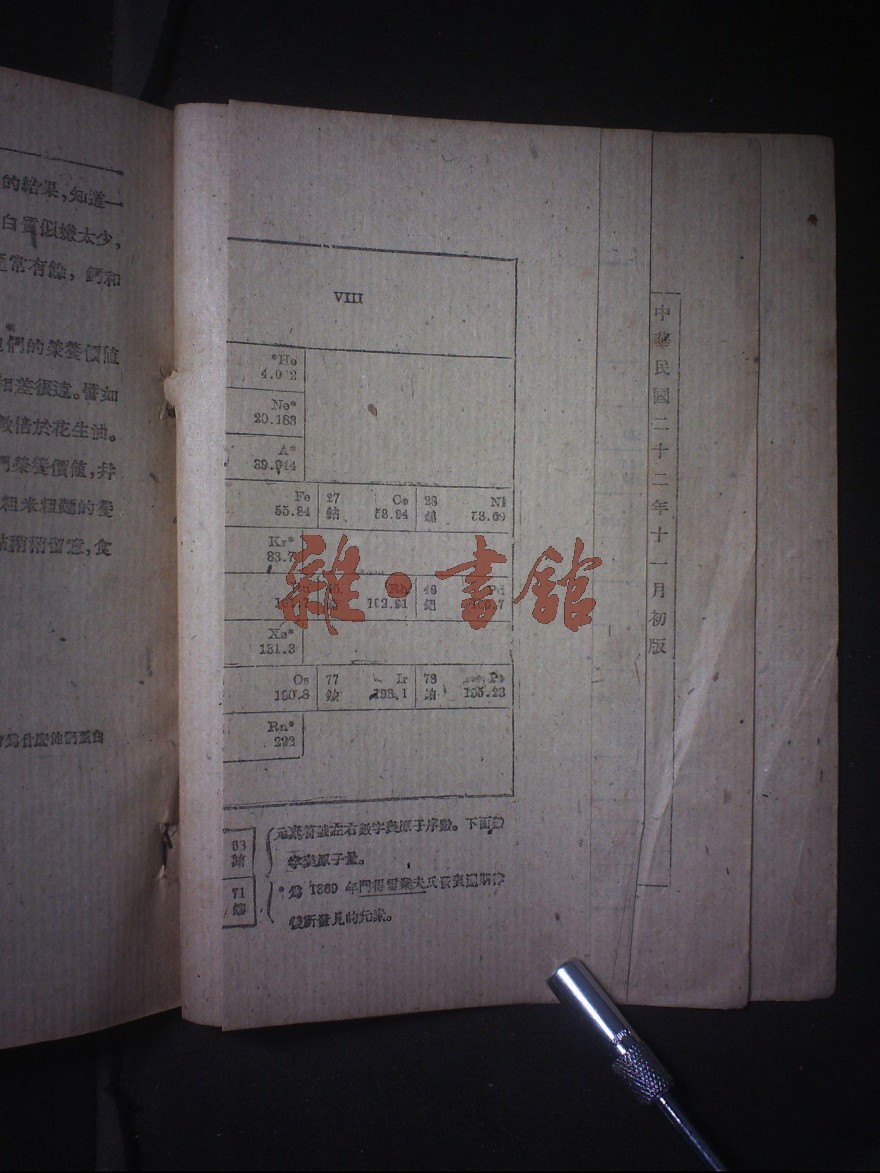 的結果，知道一
白質似嫌太少，
常有餘，鈣和
們的榮養價值
相差很遠。譬如
數倍於花生油。
榮養價值，幷
粗米粗麵的養
稍稍留意，食
爲什麽他們蛋白
VIII
*He
4.002
Ne*
20.183
A*
39.944
Fe 27 Co 28 Ni
55.84 鈷 58.94 鎳 58.69
Kr*
83.7
Rh 46 Pd
102.91 鈀
Xe*
131.3
Os 77 Ir 78 Pt
190.8 銥 193.1 鉑 195.23
Rn*
222
63
71
元素符號左右數字與原子序數。下面數
字與原子量。
*爲 1869 年門得雷業夫氏發表週期律
後所發見的元素。
中華民國二十二年十一月初版
雜·書館